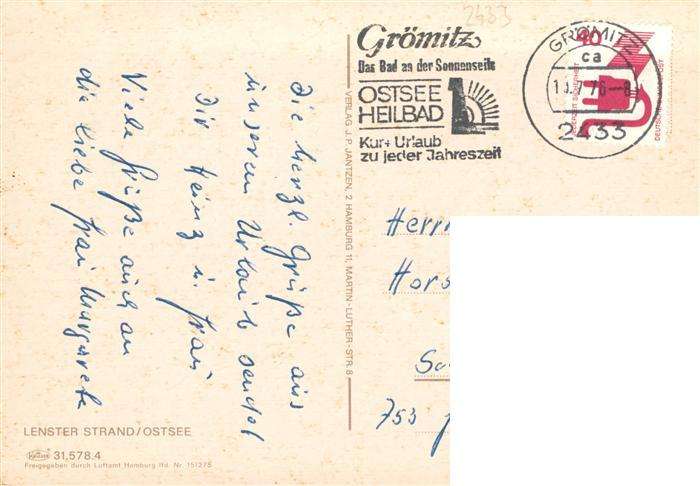 2433
Grömitz
Das Bad an der Sonnenseite
OSTSEE
HEILBAD
Kur + Urlaub
zu jeder Jahreszeit
GRÖMITZ
ca
76
2433
40
DEUTSCHE BUNDESPOST
Die herzl. Grüße aus
unseren Urlaub sendet
Dir Heinz u. Frau
Viele Grüße auch an
die liebe Frau Margarete
VERLAG J. P. JANTZEN, 2 HAMBURG 11, MARTIN-LUTHER-STR. 8
Herrn
Hors
753
LENSTER STRAND/OSTSEE
31.578.4
Freigegeben durch Luftamt Hamburg lfd. Nr. 151275